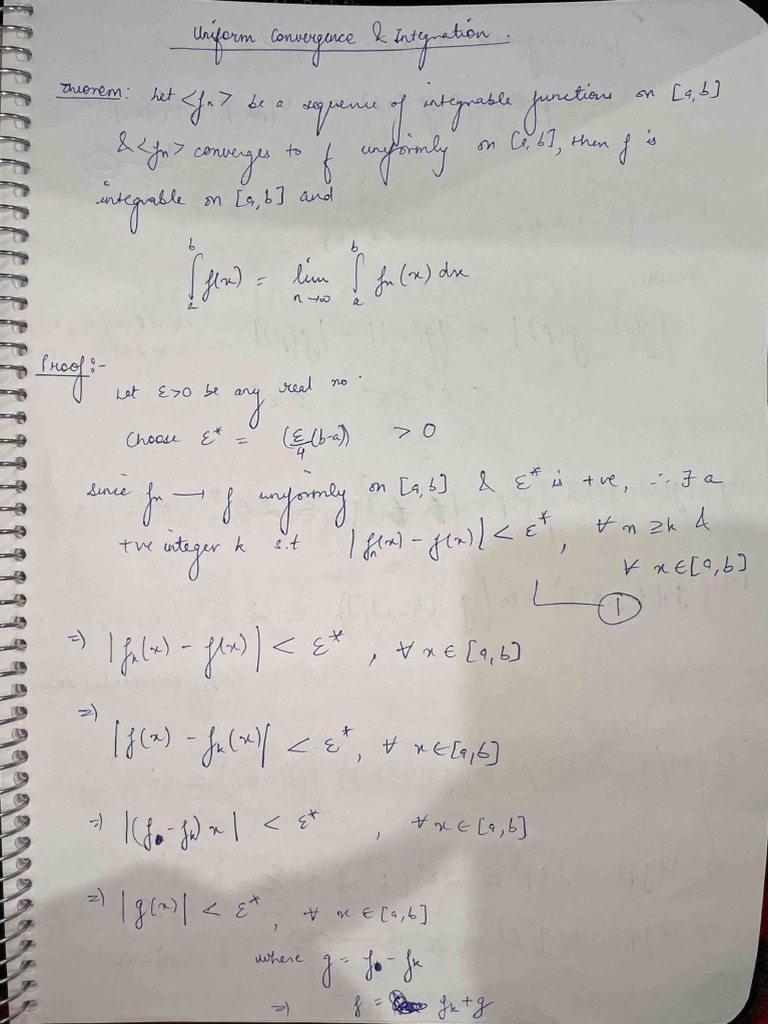 Uniform Convergence & Integration.
Theorem: Let <fn> be a sequence of integrable functions on [a,b]
& <fn> converges to f uniformly on [a,b], then f is
integrable on [a,b] and
∫_a^b f(x) = lim_{n→∞} ∫_a^b fn(x) dx
Proof:-
Let ε>0 be any real no.
Choose ε* = (ε/4(b-a)) > 0
Since fn → f uniformly on [a,b] & ε* is +ve, ∴ ∃ a
+ve integer k s.t |fn(x) - f(x)| < ε*, ∀ n ≥ k &
∀ x∈[a,b]
①
⇒ |fk(x) - f(x)| < ε*, ∀ x ∈ [a,b]
⇒ |f(x) - fk(x)| < ε*, ∀ x∈[a,b]
⇒ |(f - fk) x| < ε*, ∀ x ∈ [a,b]
⇒ |g(x)| < ε*, ∀ x ∈ [a,b]
where g = f - fk
⇒ f = fk + g